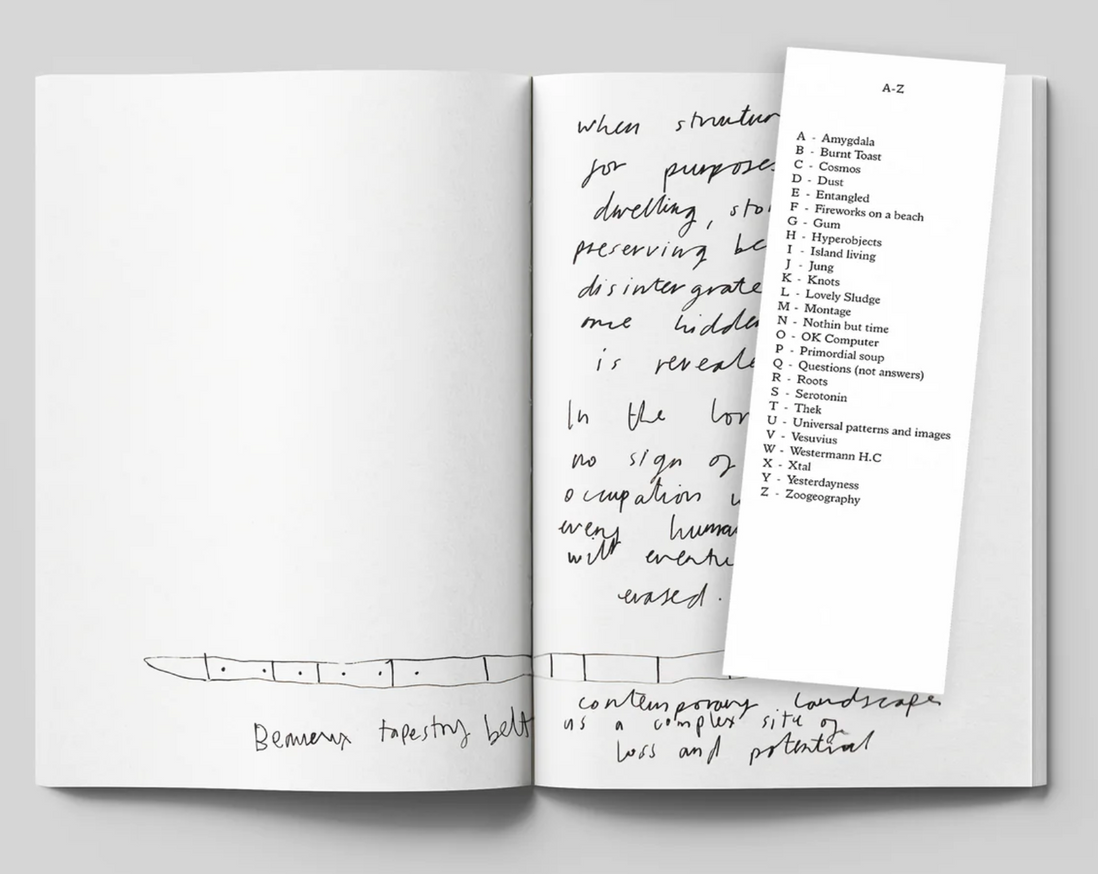 tapestry belt
when structur
for purpose
dwelling, sto
preserving be
disintergrate
once hidde
is reveale
In the lon
no sign of
occupation
every huma
will eventu
erased.
contemporary landscape
as a complex site of
loss and potential
A-Z
A - Amygdala
B - Burnt Toast
C - Cosmos
D - Dust
E - Entangled
F - Fireworks on a beach
G - Gum
H - Hyperobjects
I - Island living
J - Jung
K - Knots
L - Lovely Sludge
M - Montage
N - Nothin but time
O - OK Computer
P - Primordial soup
Q - Questions (not answers)
R - Roots
S - Serotonin
T - Thek
U - Universal patterns and images
V - Vesuvius
W - Westermann H.C
X - Xtal
Y - Yesterdayness
Z - Zoogeography